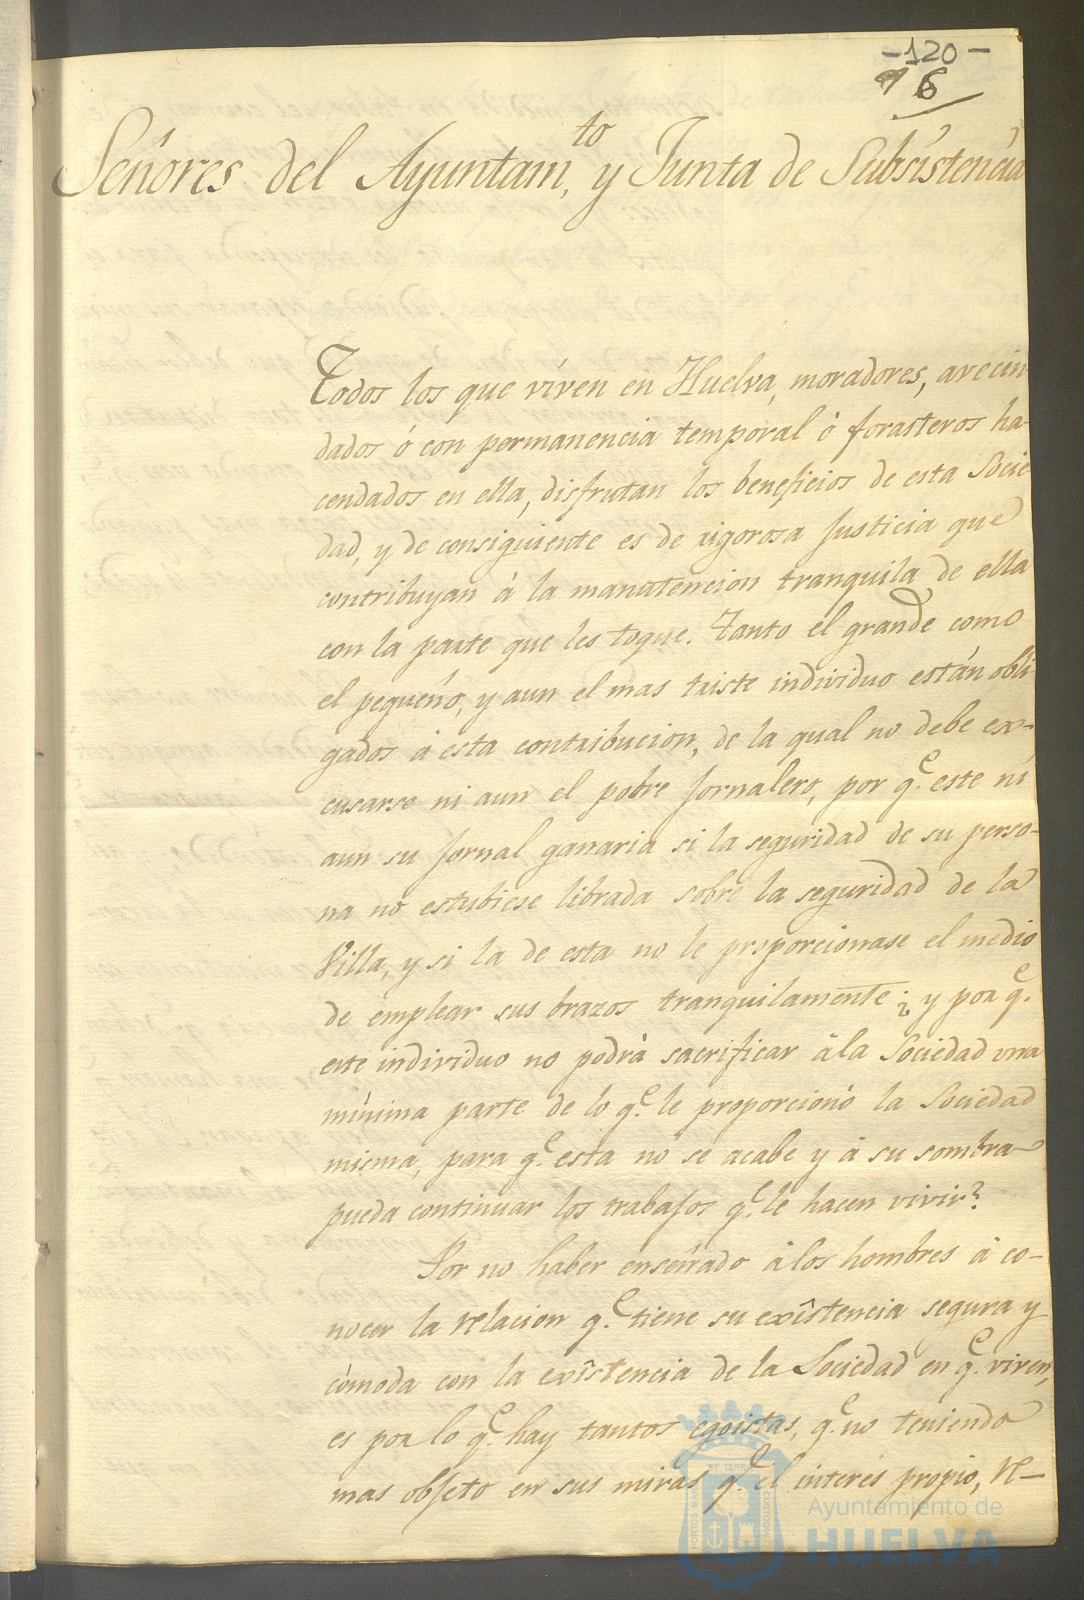 -120-
76
Señores del Ayuntam.to y Junta de Subsistencia
Todos los que viven en Huelva, moradores, avecin
dados ó con permanencia temporal ò forasteros ha-
cendados en ella, disfrutan los beneficios de esta Socie
dad, y de consiguiente es de rigorosa Justicia que
contribuyan à la manutencion tranquila de ella
con la parte que les toque. Tanto el grande como
el pequeño, y aun el mas triste individuo están obli
gados à esta contribucion, de la qual no debe ex-
cusarse ni aun el pobre Jornalero, por q.e este ni
aun su Jornal ganaria si la seguridad de su perso-
na no estubiese librada sobre la seguridad de la
Villa, y si la de esta no le proporcionase el medio
de emplear sus brazos tranquilamente; ¿ y por q.e
este individuo no podrà sacrificar à la Sociedad una
minima parte de lo q.e le proporcionò la Sociedad
misma, para q.e esta no se acabe y à su sombra
pueda continuar los trabajos q.e le hacen vivir?
Por no haber enseñado à los hombres à co-
nocer la relacion q.e tiene su exîstencia segura y
còmoda con la exîstencia de la Sociedad en q.e viven,
es por lo q.e hay tantos egoistas, q.e no teniendo
mas objeto en sus miras q.e el interes propio, re-
Ayuntamiento de
HUELVA